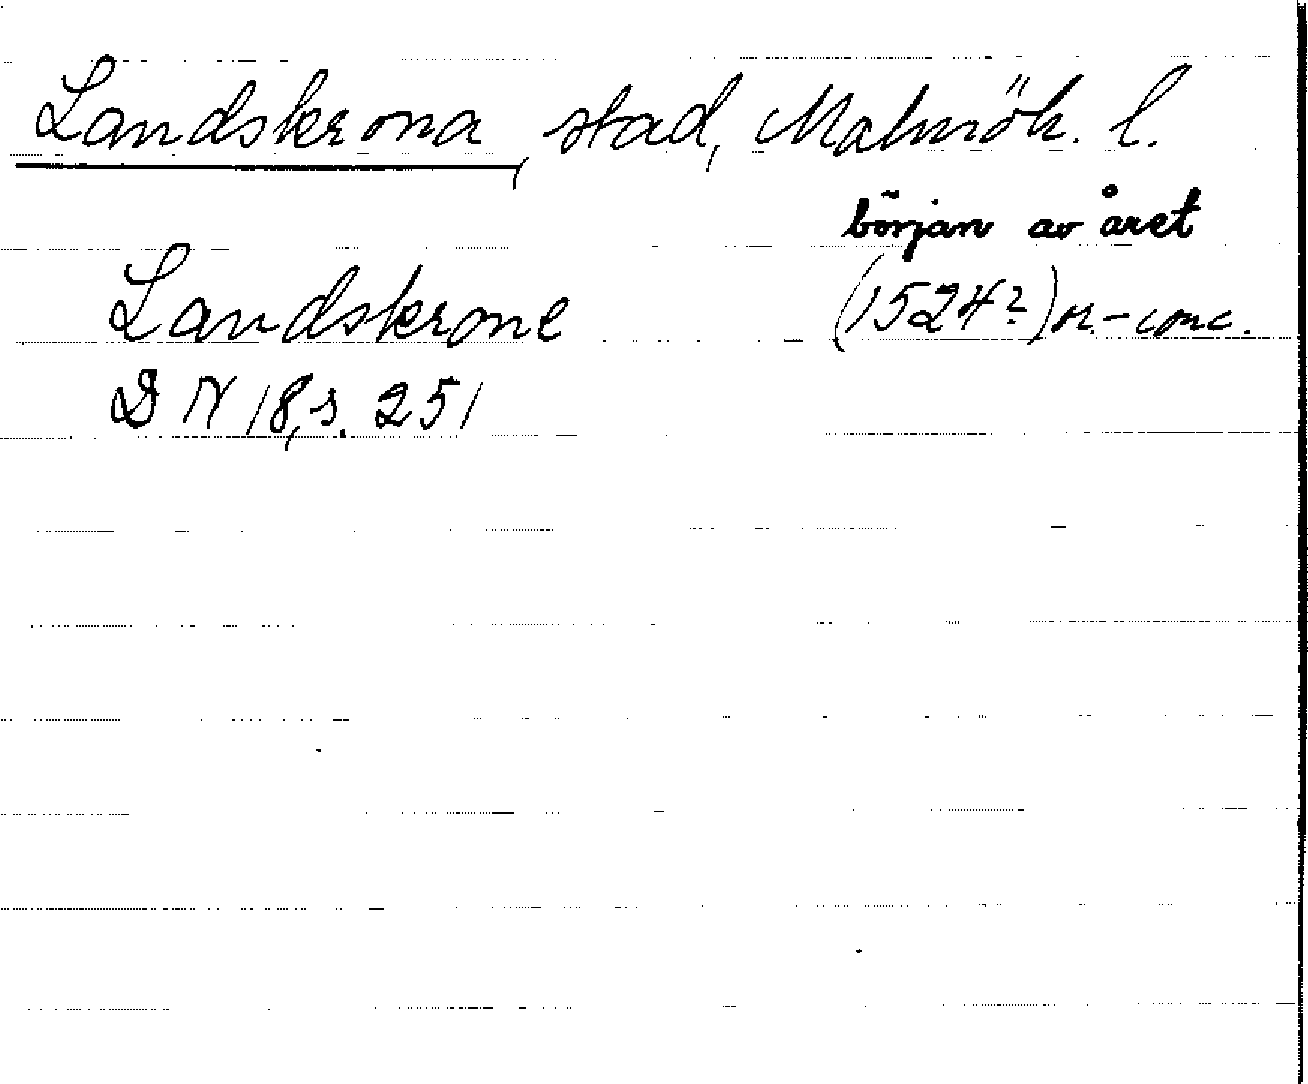 Landskrona, stad, Malmöh. l.
början av året
Landskrone (1524?) or.-conc.
DN 18, s. 251